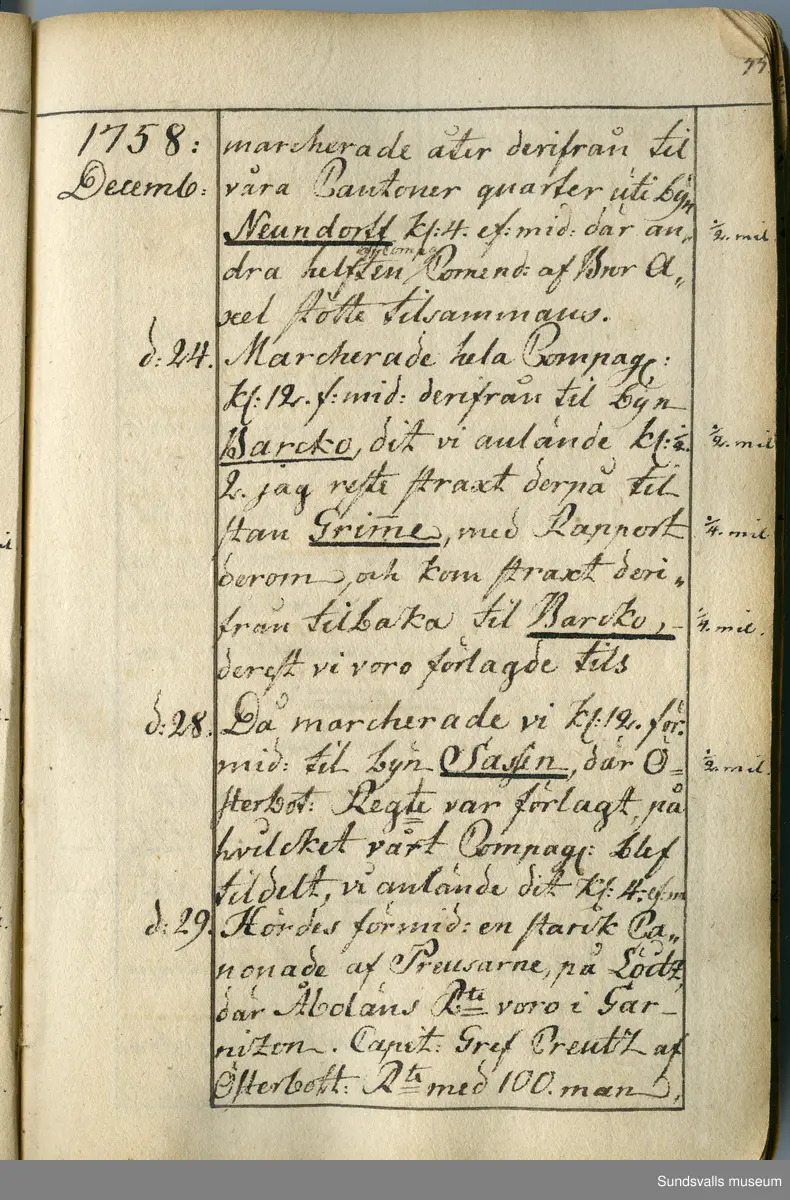 33
1758: marcherade åter derifrån til
Decemb: våra Cantoner quarter uti byn
Neundorff kl: 4. ef: mid: där an„ ½. mil
dra helften Comend: af Bror A„
xel stötte tilsammans.
d: 24. Marcherade hela Compag:
kl: 12. f: mid: derifrån til byn
Barcko, dit vi anlände kl: ½. ½. mil
2. jag reste straxt derpå til
stan Grime, med Rapport ¼. mil
derom, och kom straxt deri„
från tilbaka til Barcko, ¼. mil.
derest vi voro förlagde tils
d: 28. Då marcherade vi kl: 12. för:
mid: til byn Sassen, där Ö= ½. mil.
sterbot: Regte var förlagt, på
hvilcket vårt Compag: blef
tildelt, vi anlände dit kl: 4. ef: m
d: 29. Hördes förmid: en starck Ca„
nonade af Preusarne, på Löcitz,
där Åboläns Rte voro i Gar-
nizon. Capit: Gref Creutz af
Österbott: Rte med 100. man,
Sundsvalls museum